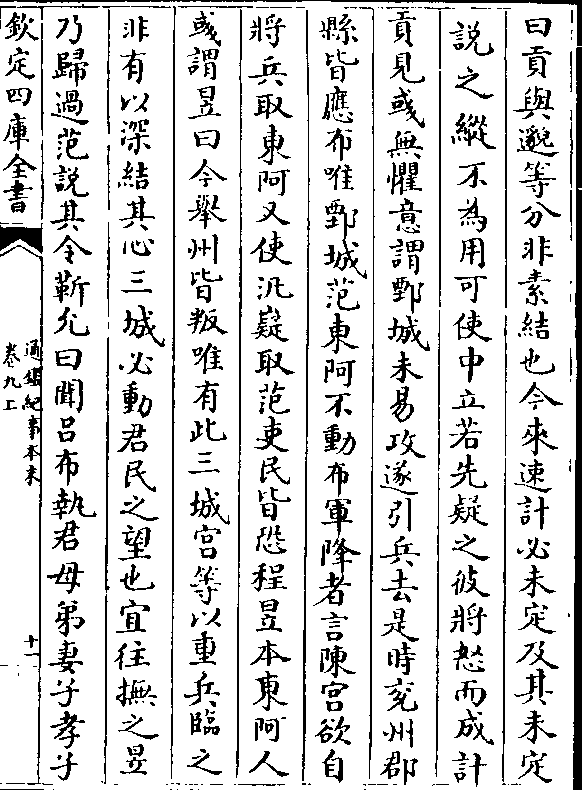 曰貢與邈等分非素結也今來速計必未定及其未定
說之縱不為用可使中立若先疑之彼將怒而成計
貢見彧無懼意謂鄄城未易攻遂引兵去是時兖州郡
縣皆應布唯鄄城范東阿不動布軍降者言陳宮欲自
將兵取東阿又使汎嶷取范吏民皆恐程昱本東阿人
彧謂昱曰今舉州皆叛唯有此三城宮等以重兵臨之
非有以深結其心三城必動君民之望也宜往撫之昱
乃歸過范說其令靳允曰聞吕布執君母弟妻子孝子
欽定四庫全書
通鑑紀事本末
卷九上
十一